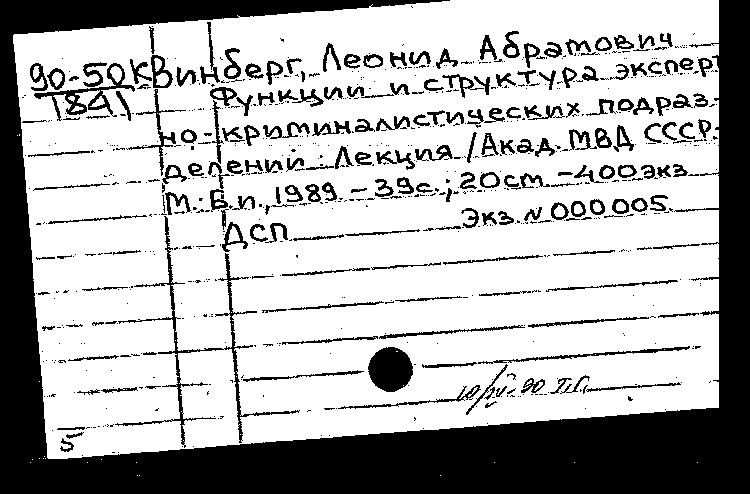 90-50К Винберг, Леонид Абрамович
1841 Функции и структура эксперт
но-криминалистических подраз-
делений: Лекция /Акад. МВД СССР.-
М.: Б.и., 1989 - 39с.; 20см -400экз
ДСП Экз. N 000005
10/IV-90
5